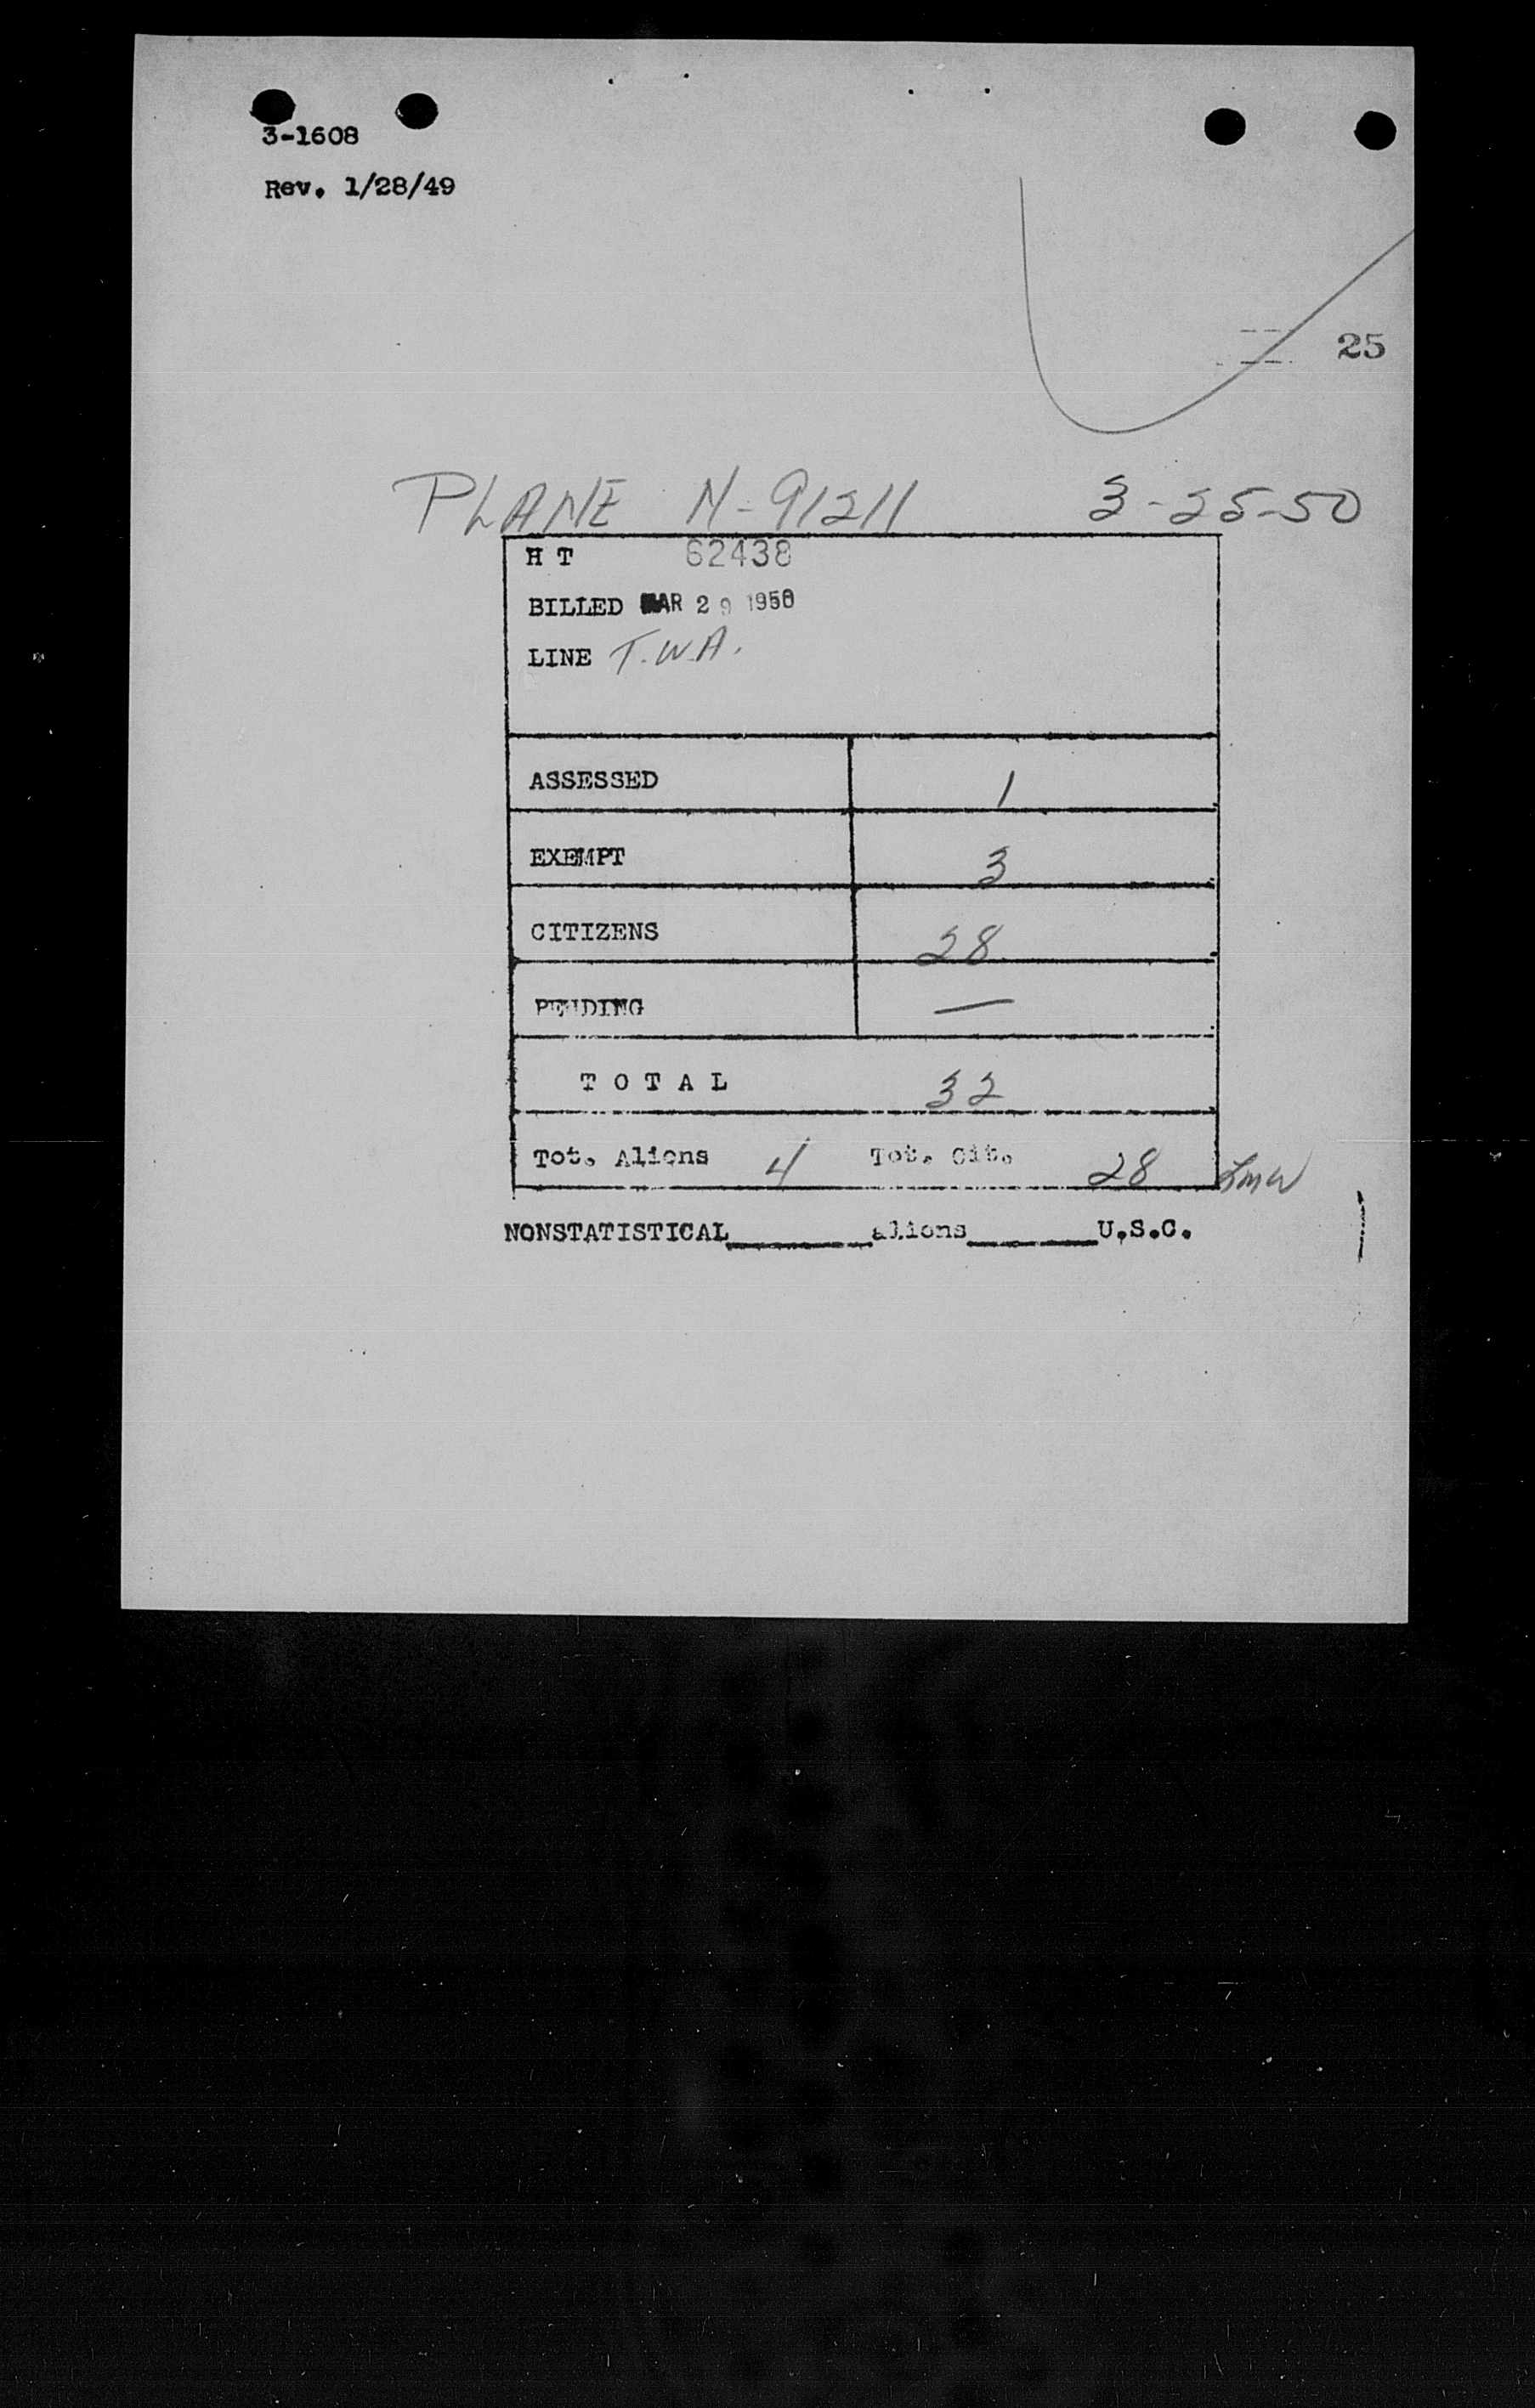 3-1608
Rev. 1/28/49
25
PLANE N-91211 3-25-50
H T 62438
BILLED MAR 29 1950
LINE T.W.A.
ASSESSED 1
EXEMPT 3
CITIZENS 28
PENDING —
TOTAL 32
Tot. Aliens 4 Tot. Cit. 28 LMW
NONSTATISTICAL________aliens________U.S.C.